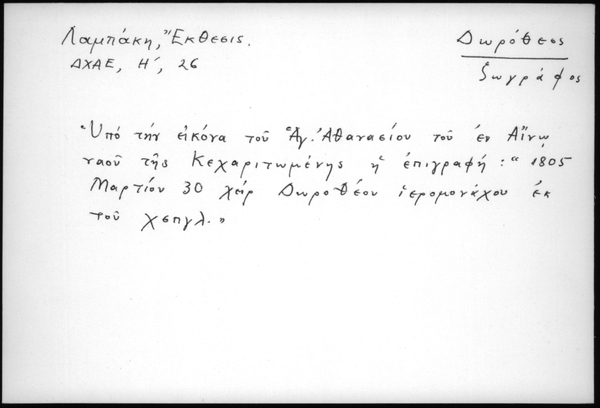 Λαμπάκη, Ἔκθεσις.
ΔΧΑΕ, Η΄, 26
Δωρόθεος
ζωγράφος
Ὑπό τήν εἰκόνα τοῦ Ἁγ. Ἀθανασίου τοῦ ἐν Αἴνῳ
ναοῦ τῆς Κεχαριτωμένης ἡ ἐπιγραφή : “ 1805
Μαρτίου 30 χείρ Δωροθέου ἱερομονάχου ἐκ
τοῦ χσπγλ. »